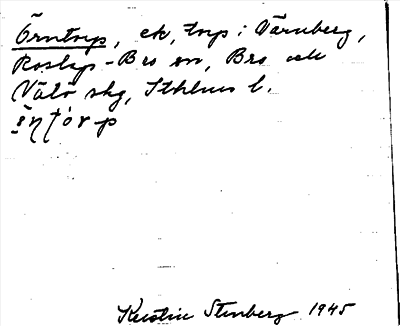 Örntorp, ek, torp i Tärnberg,
Roslags-Bro sn, Bro och
Vätö skg, Sthlms l.
Kerstin Stenberg 1945